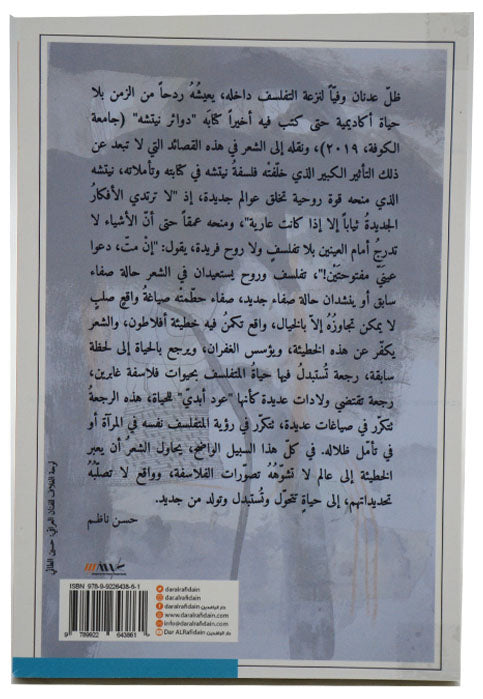 ظلّ عدنان وفيّاً لنزعة التفلسف داخله، يعيشُهُ ردحاً من الزمن بلا
حياة أكاديمية حتى كتب فيه أخيراً كتابَه "دوائر نيتشه" (جامعة
الكوفة، ٢٠١٩)، ونقله إلى الشعر في هذه القصائد التي لا تبعد عن
ذلك التأثير الكبير الذي خلّفتْه فلسفةُ نيتشه في كتابته وتأملاته، نيتشه
الذي منحه قوة روحية تخلق عوالم جديدة، إذ "لا ترتدي الأفكارُ
الجديدةُ ثياباً إلا إذا كانت عارية"، ومنحه عمقاً حتى أنّ الأشياء لا
تدرجُ أمام العينين بلا تفلسفٍ ولا روح فريدة، يقول: "إنْ متّ، دعوا
عينَيّ مفتوحتَيْن!"، تفلسف وروح يستعيدان في الشعر حالة صفاء
سابق أو ينشدان حالة صفاء جديد، صفاء حطّمتْه صياغةُ واقعٍ صلبٍ
لا يمكن تجاوزُهُ إلاّ بالخيال، واقع تكمنُ فيه خطيئة أفلاطون، والشعر
يكفّر عن هذه الخطيئة، ويؤسس الغفران، ويرجع بالحياة إلى لحظة
سابقة، رجعة تُستبدلُ فيها حياةُ المتفلسف بحيوات فلاسفة غابرين،
رجعة تقتضي ولادات عديدة كأنها "عود أبديّ" للحياة، هذه الرجعةُ
تتكرّر في صياغات عديدة، تتكرّر في رؤية المتفلسف نفسه في المرآة أو
في تأمّل ظلاله. في كلّ هذا السبيل الواضح، يحاول الشعرُ أن يعبر
الخطيئة إلى عالم لا تشوّهُهُ تصوّرات الفلاسفة، وواقع لا تصلّبُهُ
تحديداتهم، إلى حياةٍ تتحوّل وتُستبدل وتولد من جديد.
حسن ناظم
لوحة الغلاف للفنان العراقي: حسين الطائي
ISBN: 978-9-9226438-6-1
9 789922 643861
daralrafidain
dar.alrafidain
دار الرافدين daralrafidain
www.daralrafidain.com
info@daralrafidain.com
Dar ALRafidain دار الرافدين